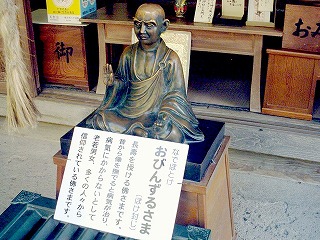 なでぼとけ
おびんずるさま
長寿を授ける（ぼけ封じ）佛さまです。
昔から像を撫でると病気が治り、
病気にかからないとして
老若男女、多くの人々から
信仰されている佛さまです。
御